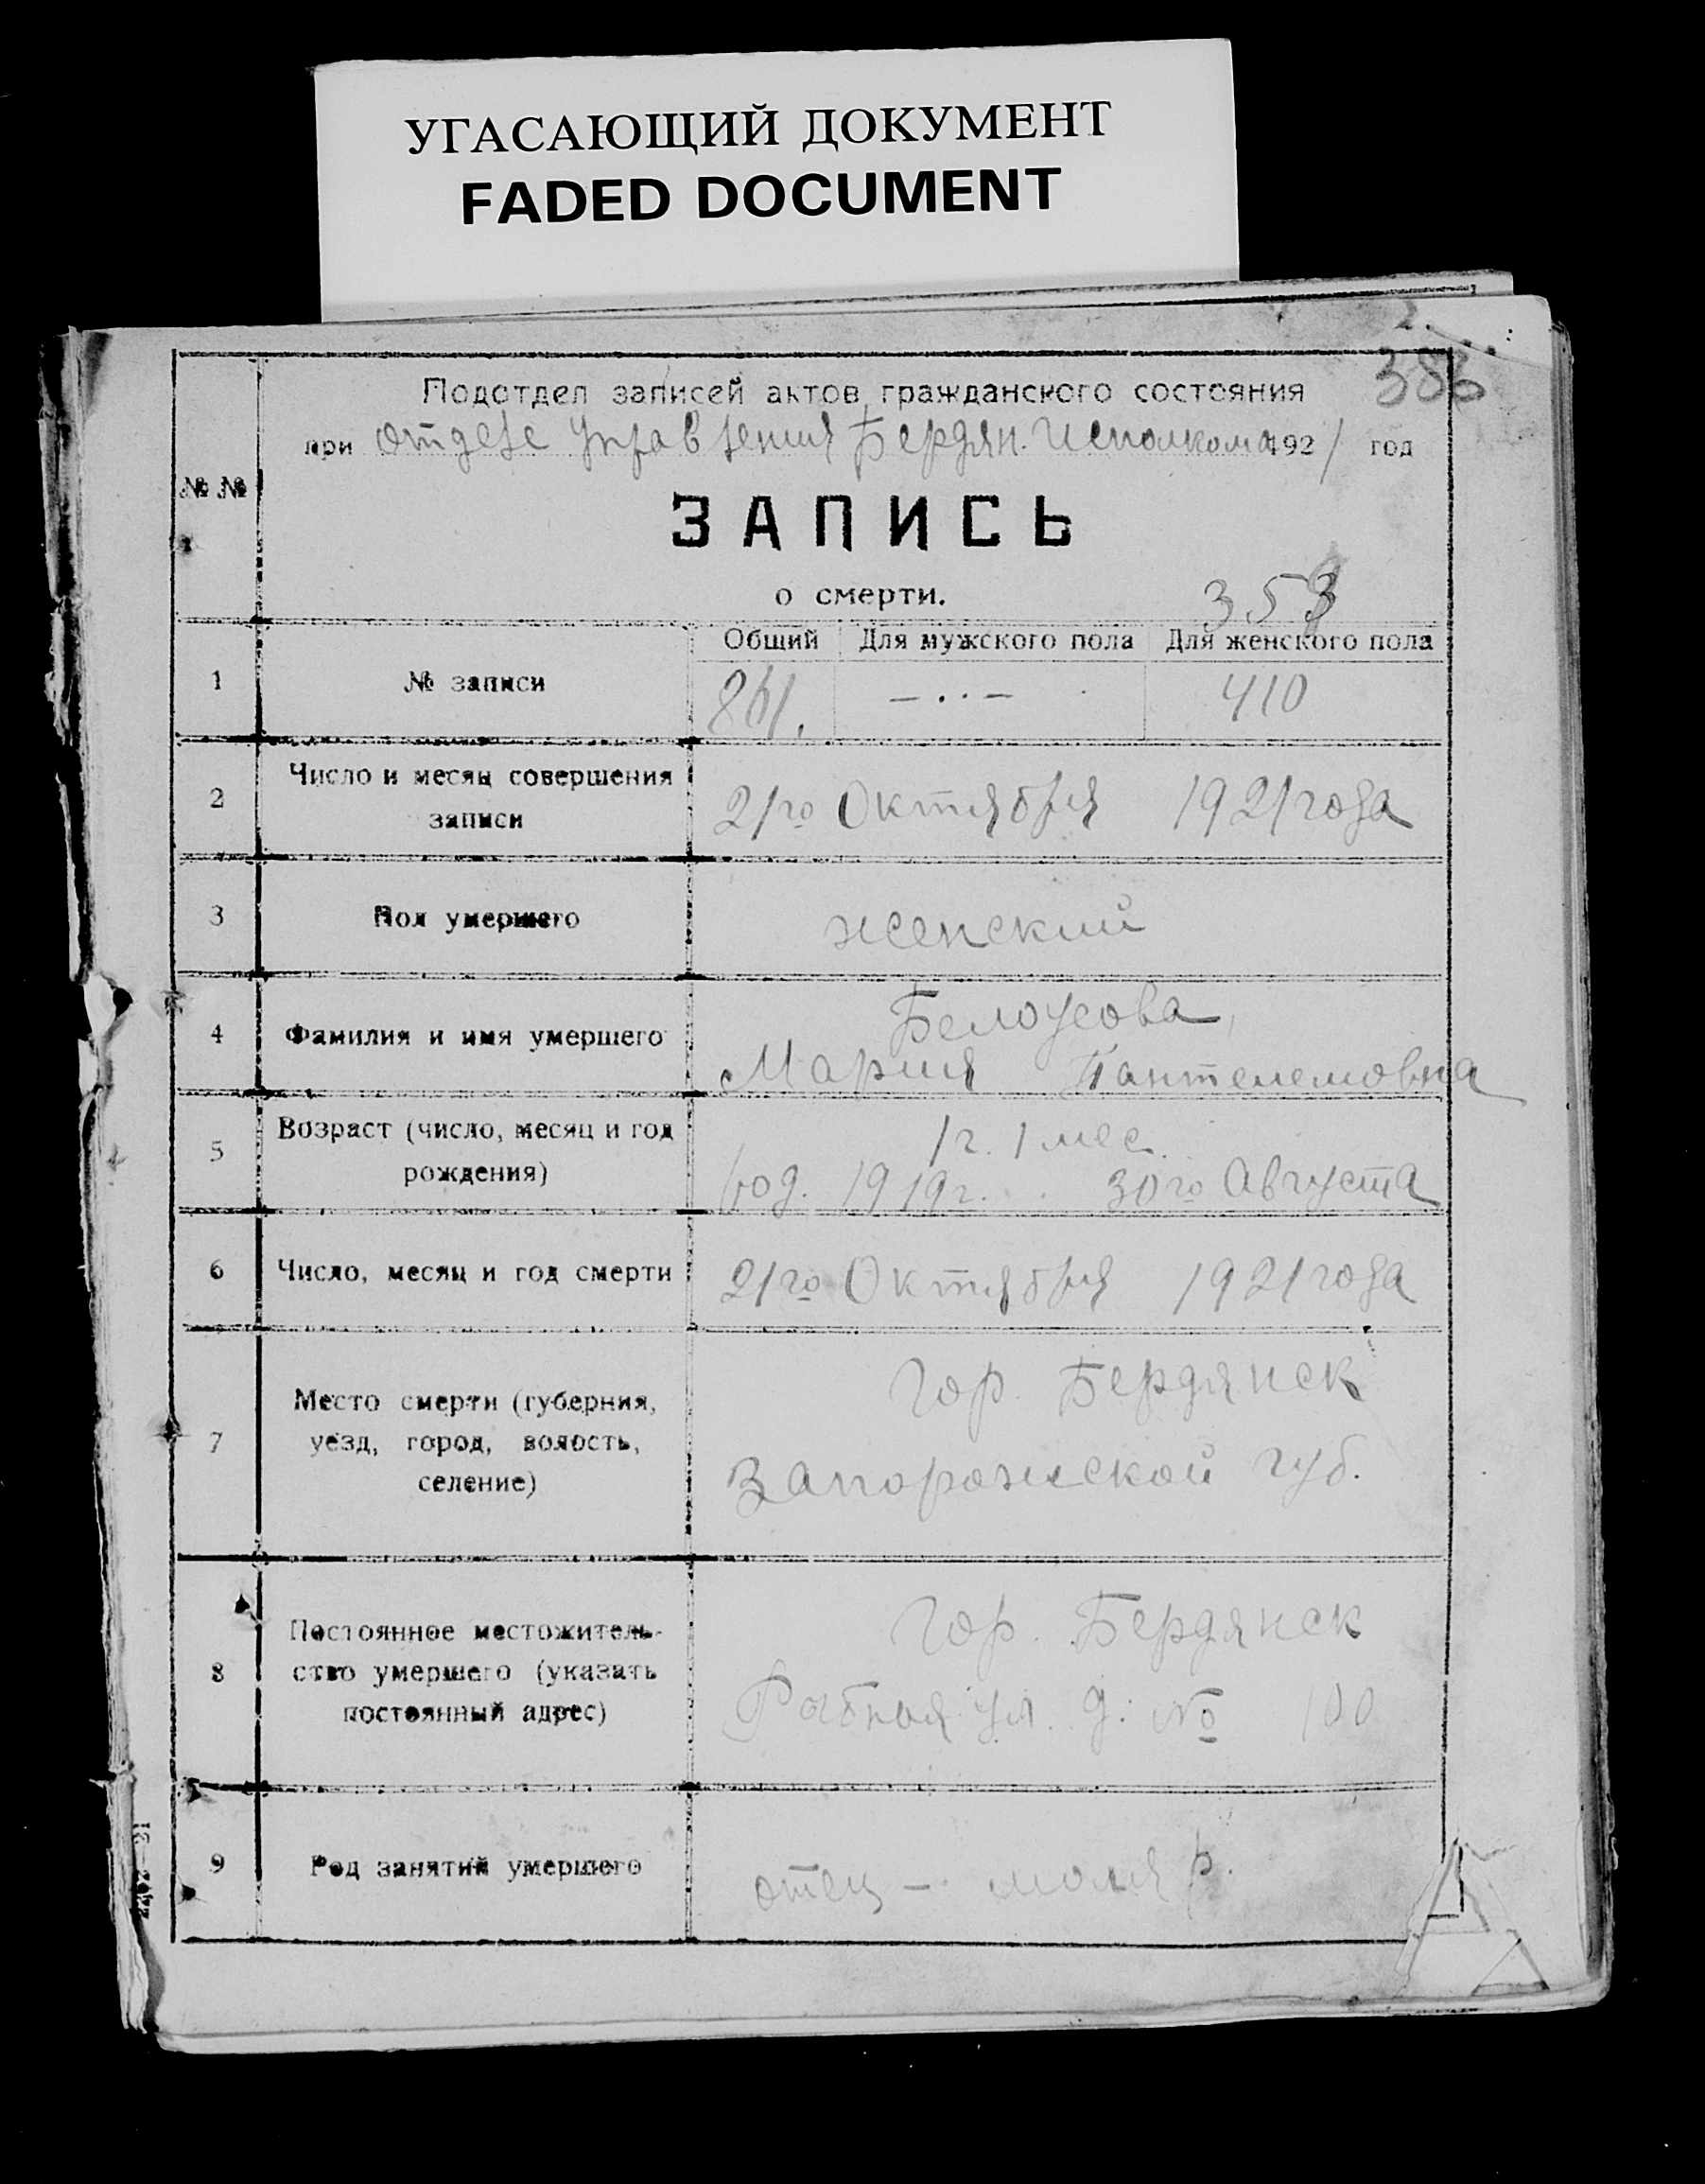 УГАСАЮЩИЙ ДОКУМЕНТ
FADED DOCUMENT
2.
386
Подотдел записей актов гражданского состояния
при отделе Управления Бердян. Исполкома 1921 год
№ №
ЗАПИСЬ
о смерти.
353
Общий Для мужского пола Для женского пола
1 № записи 861. — · · — 410
2 Число и месяц совершения
записи
21го Октября 1921 года
3 Пол умершего женский
4 Фамилия и имя умершего
Белоусова,
Мария Пантелемовна
5 Возраст (число, месяц и год
рождения)
1 г. 1 мес.
род. 1919 г. 30го Августа
6 Число, месяц и год смерти 21го Октября 1921 года
7 Место смерти (губерния,
уезд, город, волость,
селение)
Гор. Бердянск
Запорожской губ.
8 Постоянное местожитель-
ство умершего (указать
постоянный адрес)
Гор. Бердянск
ул. д. № 100
9 Род занятий умершего отец — маляр.